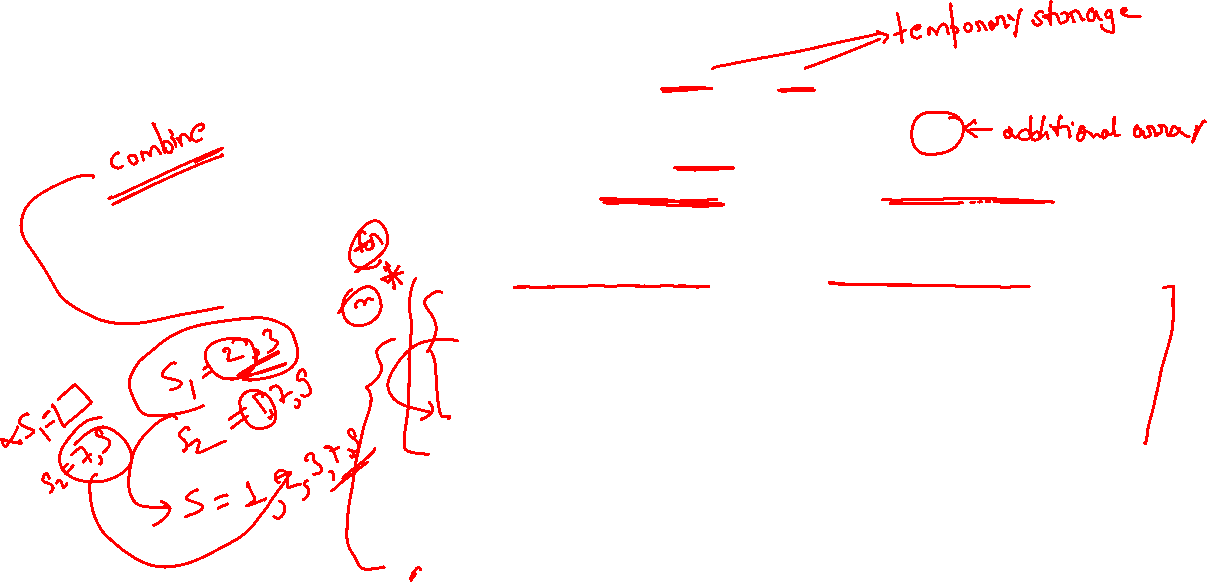 temporary storage
additional array
combine
for
*
n
S₁ = 2, 3
S₂ = 1, 7, 9
S₁ =
S₂ = 7, 9
S = 1, 2, 3, 7, 9